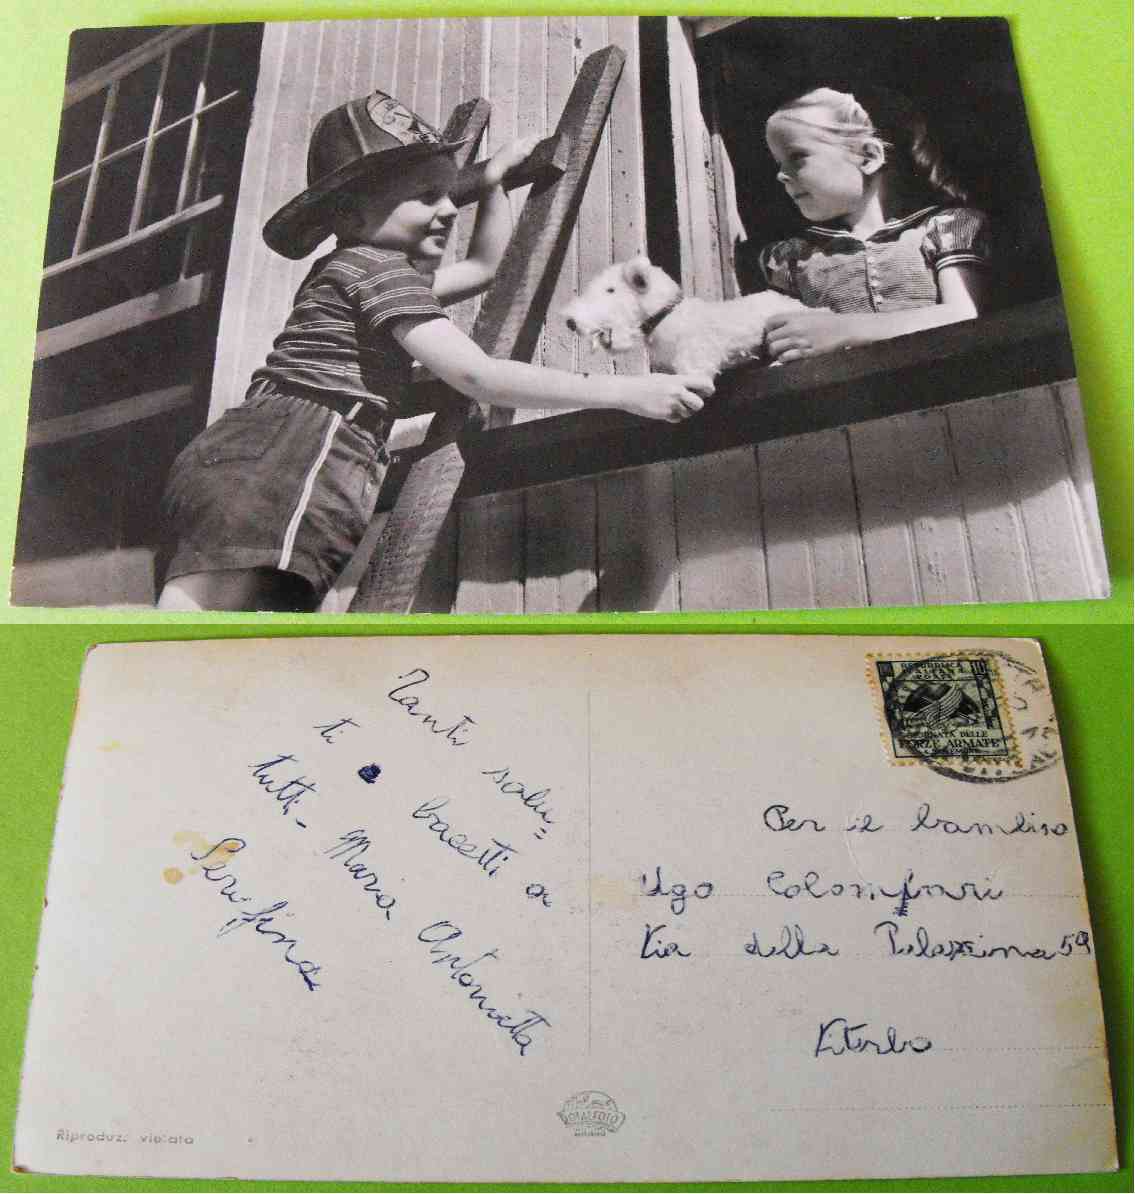 Tanti salu=
ti e bacetti a
tutti - Maria Antonietta
Serafina
REPUBBLICA
ITALIANA
POSTE
10
GIORNATA DELLE
FORZE ARMATE
Per il bambino
Ugo
Via della Palazzina 59
Viterbo
Riproduz. vietata